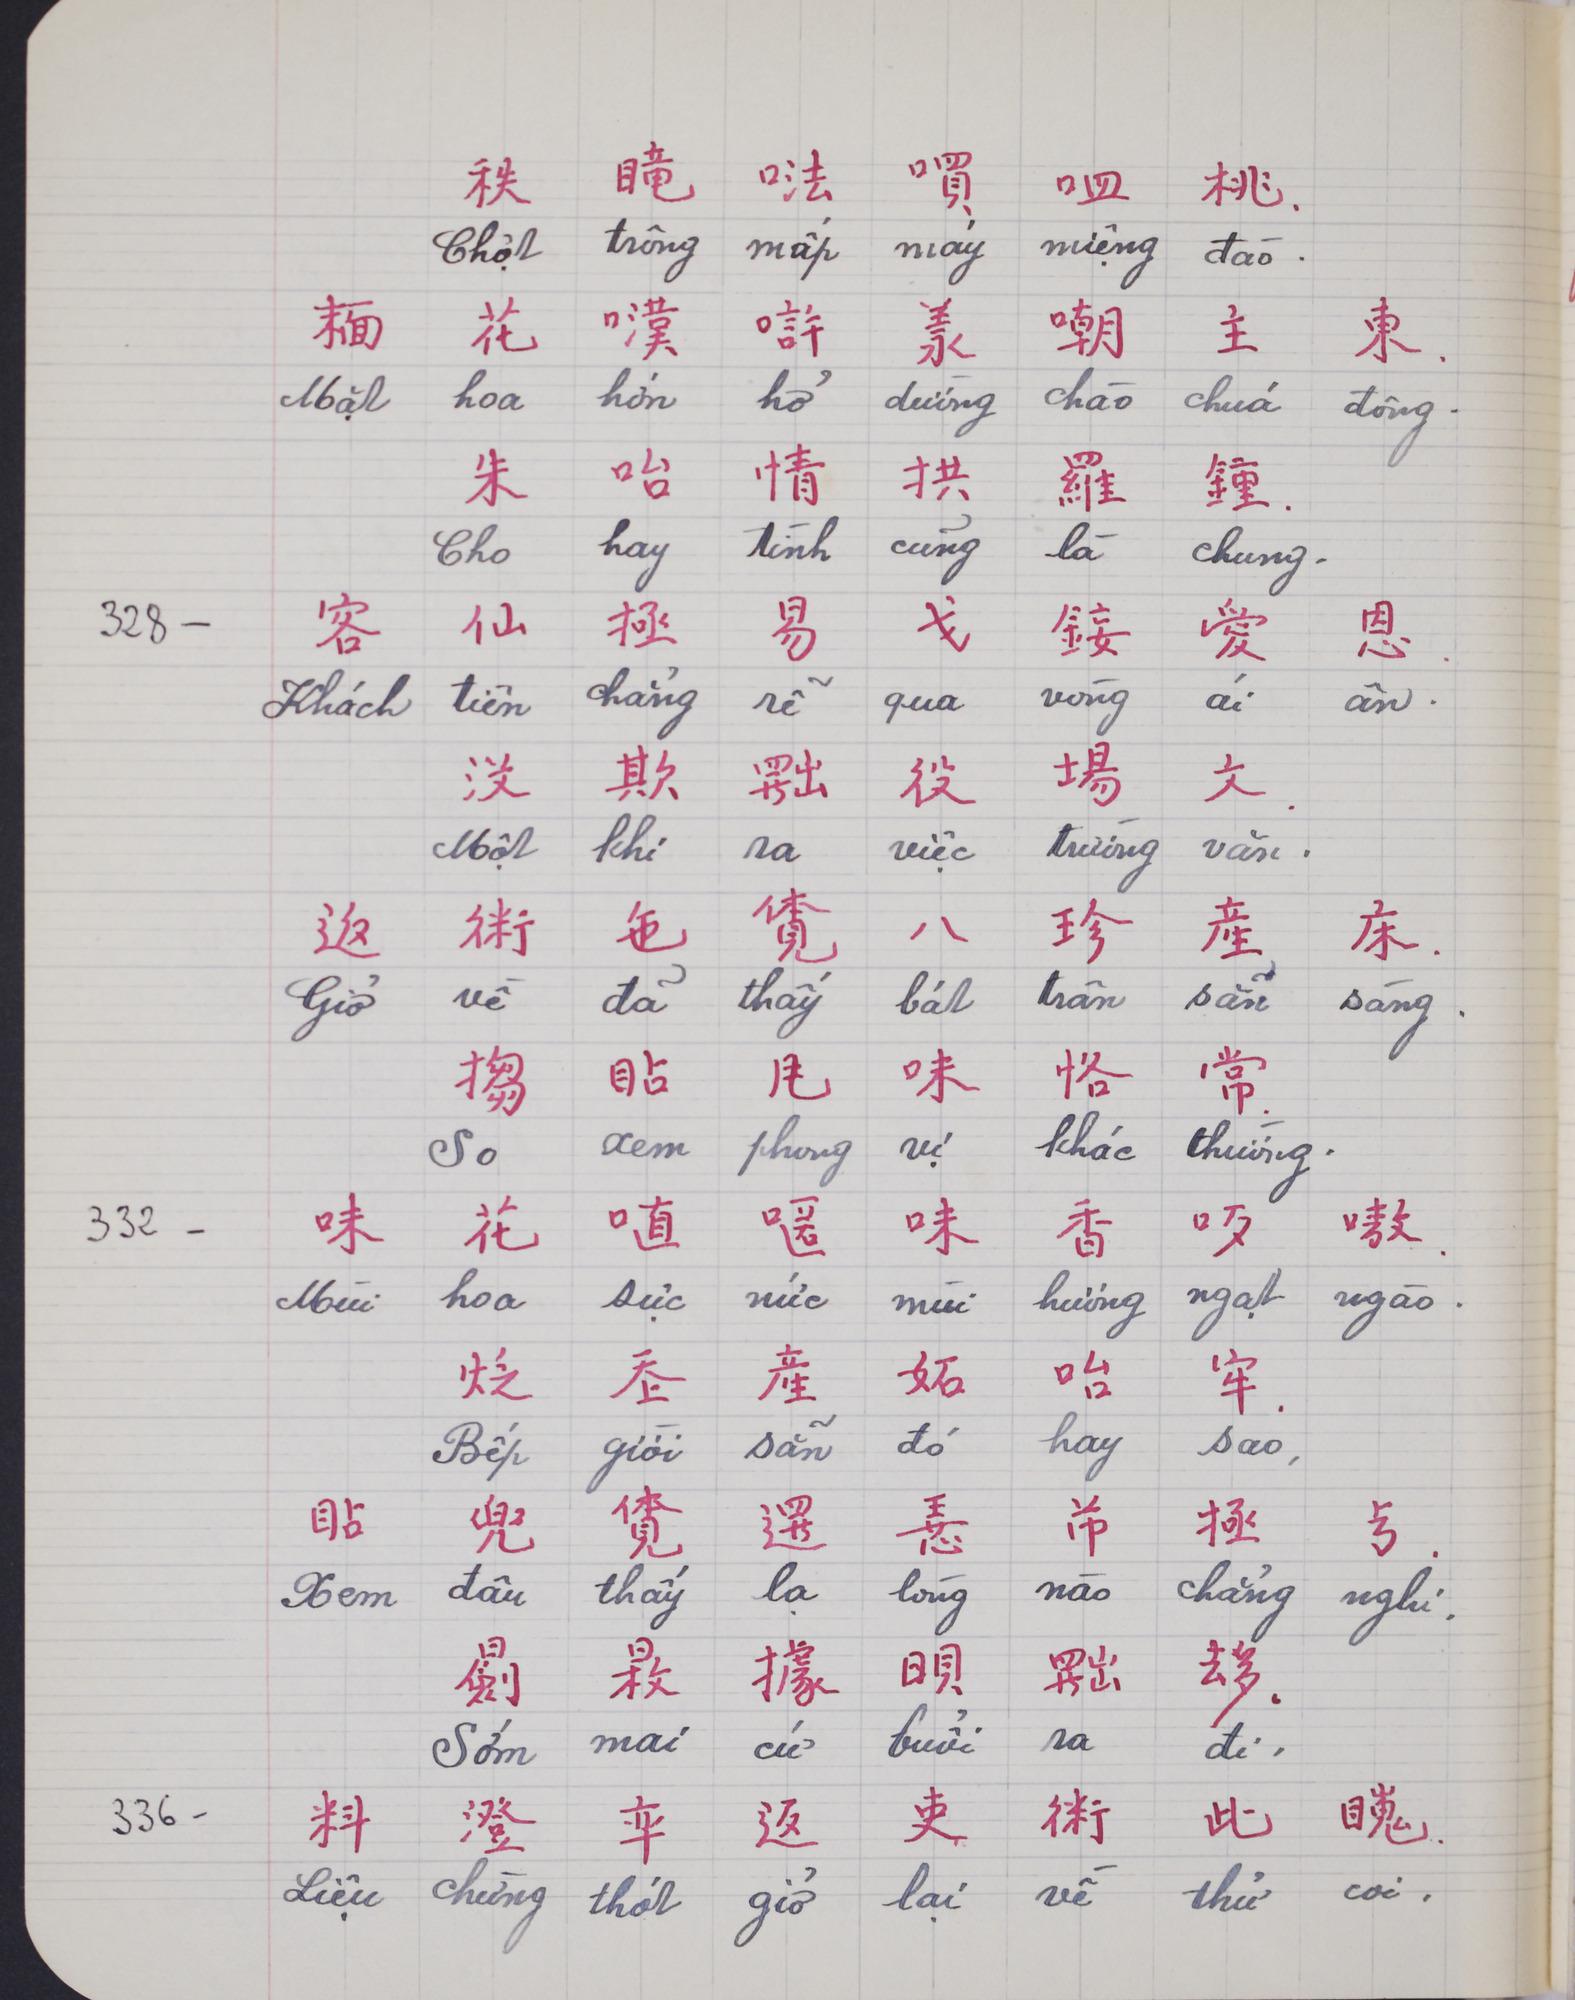 秩 瞳 㕹 嘪 𠰘 桃.
Chợt trông mấp máy miệng đào.
𩈘 花 嘆 𠽔 羕 嘲 主 東.
Mặt hoa hớn hở dường chào chuá đông.
朱 咍 情 拱 羅 鍾.
Cho hay tình cũng là chung.
328 — 客 仙 極 易 戈 𨦩 愛 恩.
Khách tiên chẳng rễ qua vòng ái ân.
沒 欺 𦋦 役 場 文.
Một khi ra việc trường văn.
返 術 㐌 𧡊 八 珍 產 床.
Giở về đã thấy bát trân sẵn sàng.
搊 貼 凡 味 恪 常.
So xem phong vị khác thường.
332 — 味 花 㗂 㘃 味 香 㕵 嗷.
Mùi hoa sực nức mùi hương ngạt ngào.
炶 𡗶 產 妬 咍 牢.
Bếp giời sẵn đó hay sao,
貼 兜 𧡊 邏 𢚸 芇 極 𠄩.
Xem đâu thấy lạ lòng nào chẳng nghi.
𣌋 𣈕 據 𣇜 𦋦 𠫾.
Sớm mai cứ buổi ra đi,
336 — 料 澄 卒 返 吏 術 此 𥋳.
Liệu chừng thót giở lại về thử coi.